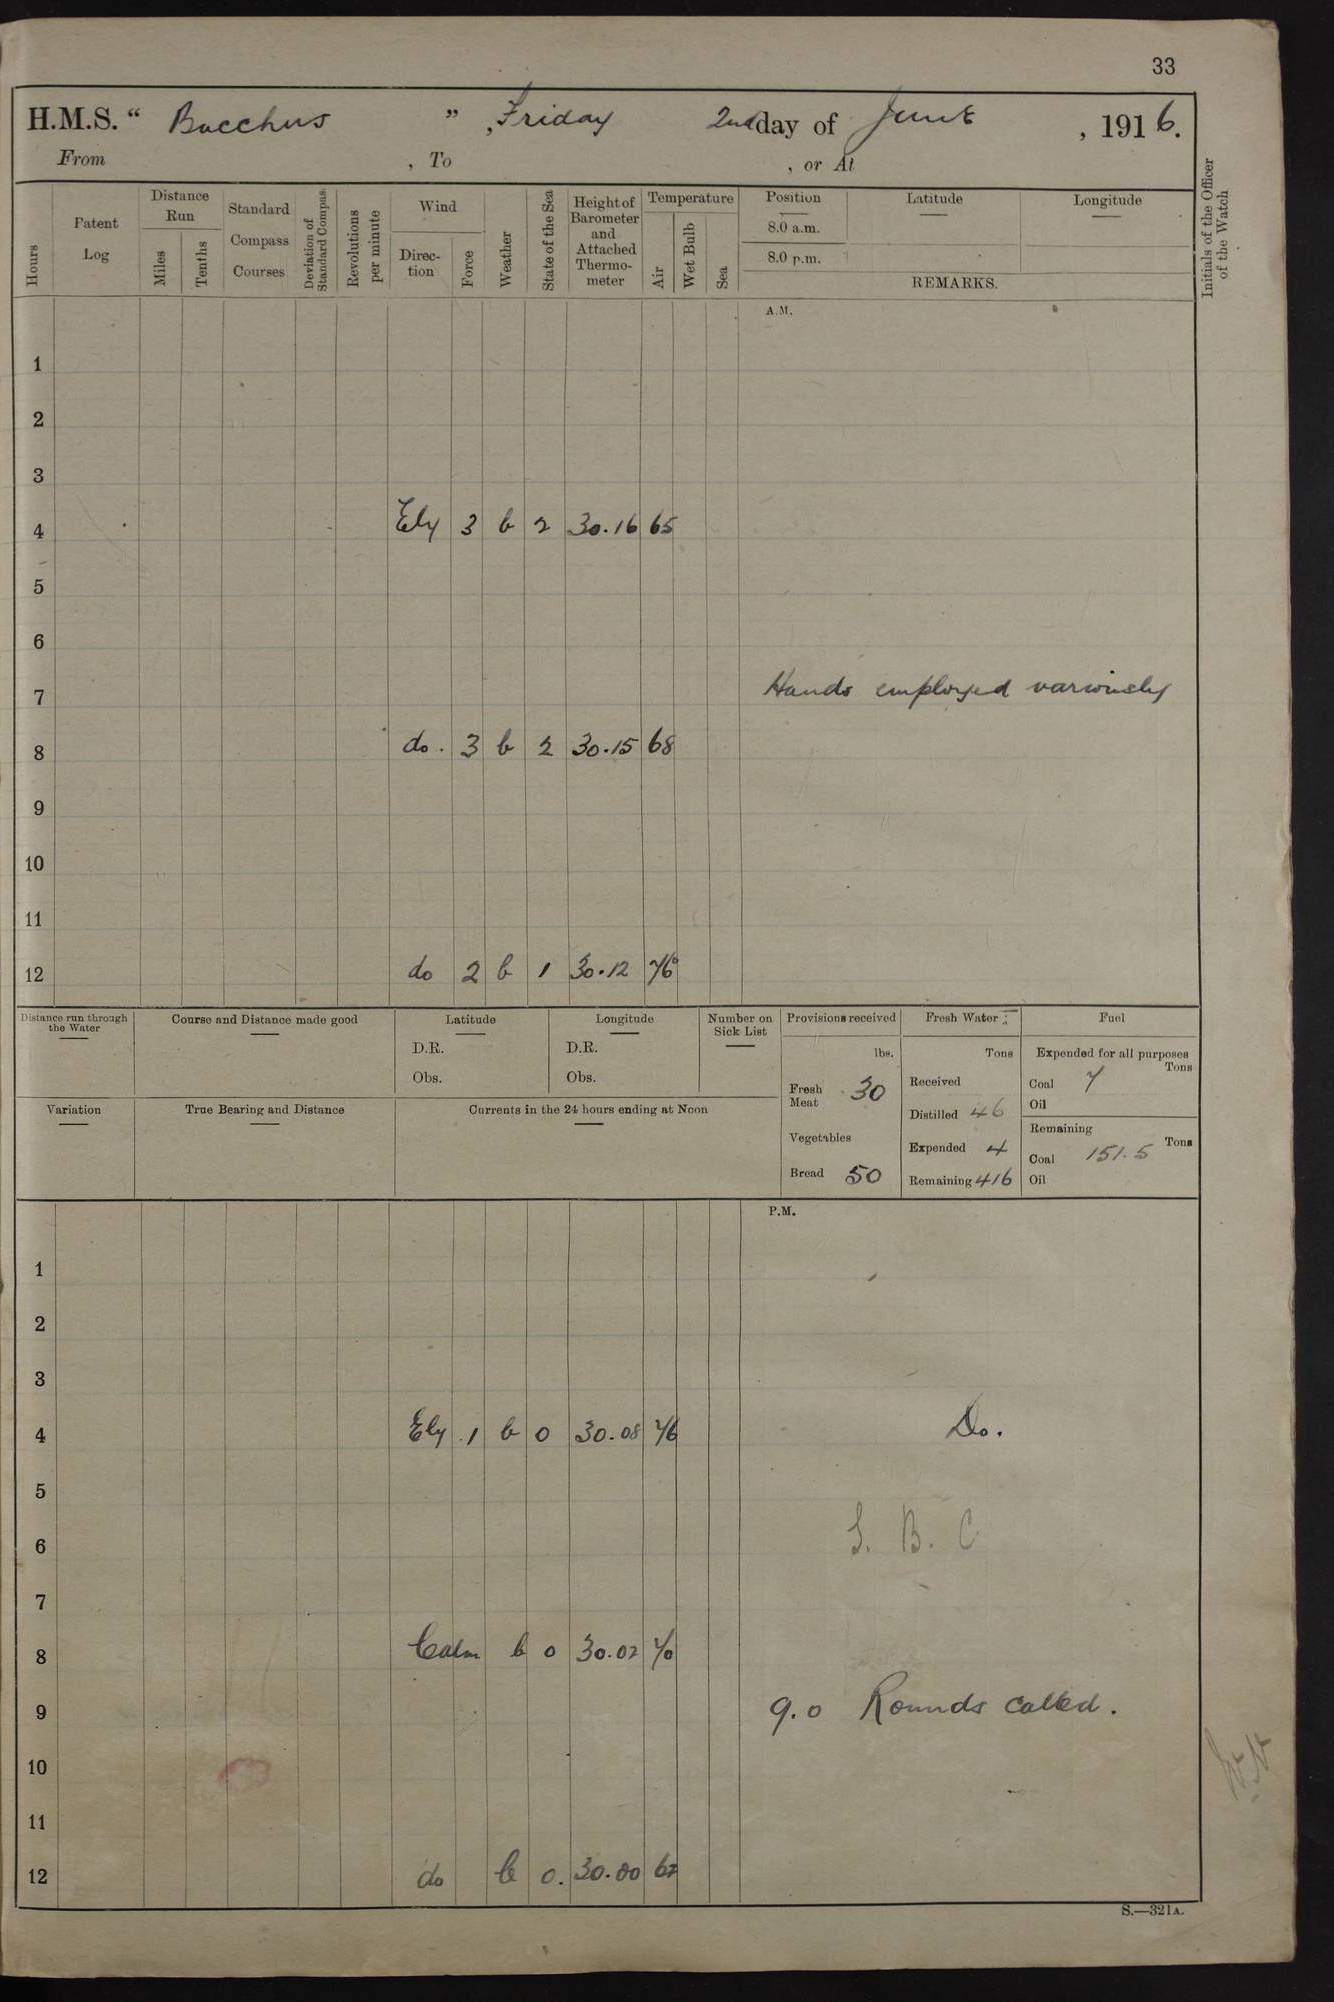 33
H.M.S. " Bacchus " , Friday 2nd day of June , 1916.
From , To , or At
Hours
Patent Log
Distance Run
Miles
Tenths
Standard Compass Courses
Deviation of Standard Compass
Revolutions per minute
Wind
Direc-tion
Force
Weather
State of the Sea
Height of Barometer and Attached Thermo-meter
Temperature
Air
Wet Bulb
Sea
Position
8.0 a.m.
8.0 p.m.
Latitude
Longitude
REMARKS.
Initials of the Officer of the Watch
A.M.
1
2
3
4 Ely 3 b 2 30.16 65
5
6
7 Hands employed variously
8 do. 3 b 2 30.15 68
9
10
11
12 do 2 b 1 30.12 76
Distance run through the Water
Course and Distance made good
Latitude
D.R.
Obs.
Longitude
D.R.
Obs.
Number on Sick List
Provisions received
lbs.
Fresh Meat 30
Vegetables
Bread 50
Fresh Water:
Tons
Received
Distilled 46
Expended 4
Remaining 416
Fuel
Expended for all purposes
Tons
Coal 7
Oil
Remaining
Tons
Coal 151.5
Oil
Variation
True Bearing and Distance
Currents in the 24 hours ending at Noon
P.M.
1
2
3
4 Ely 1 b 0 30.08 76 Do.
5
6 S. B. C
7
8 Calm b 0 30.02 70
9 9.0 Rounds called.
10
11
12 do b 0. 30.00 67
S.—321A.